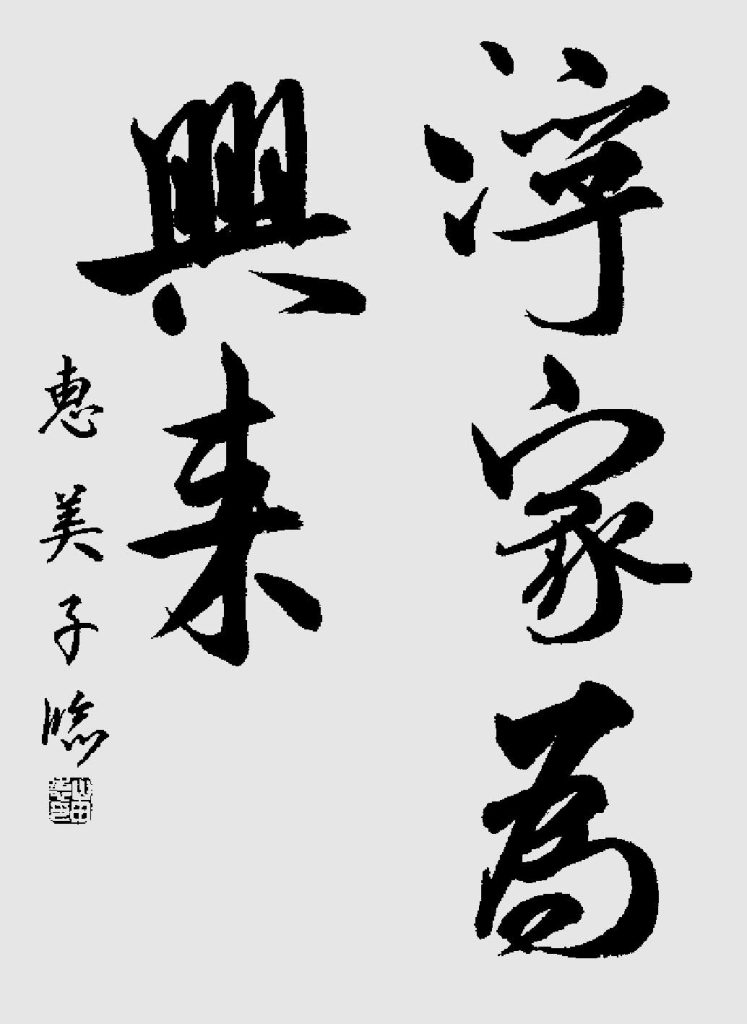 浮家為
興来
恵美子臨